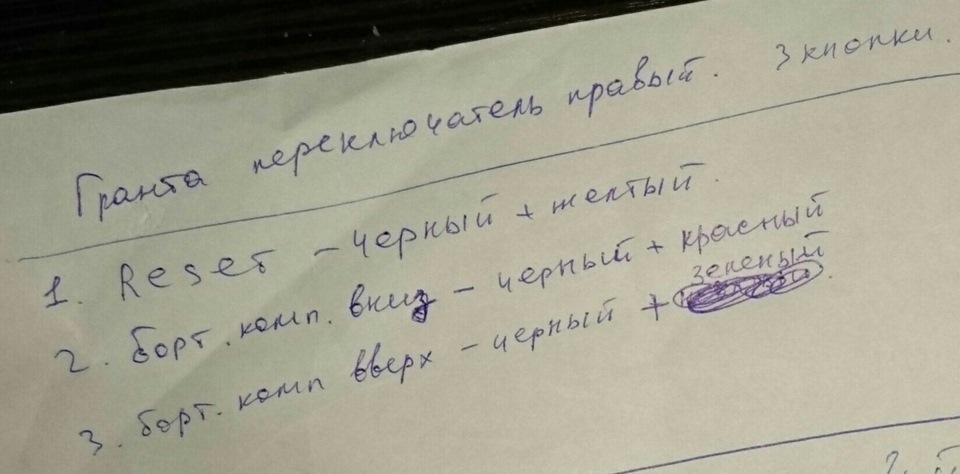 Гранта переключатель правый. 3 кнопки.
1. Reset - черный + желтый.
2. борт. комп. вниз - черный + красный
3. борт. комп вверх - черный + зеленый.